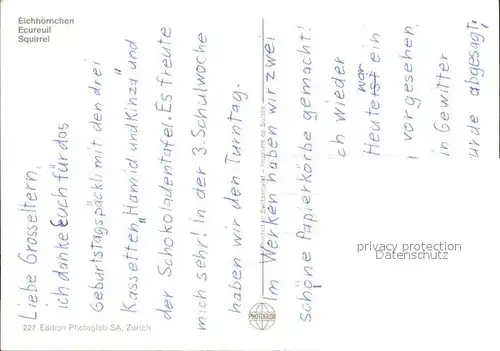 Eichhörnchen
Ecureuil
Squirrel
Liebe Grosseltern,
ich danke Euch für das
Geburtstagspäckli mit den drei
Kassetten „Hamid und Kinza" und
der Schokoladentafel. Es freute
mich sehr! In der 3. Schulwoche
haben wir den Turntag.
Im Werken haben wir zwei
schöne Papierkörbe gemacht!
ich wieder
Heute war ein
vorgesehen,
in Gewitter
urde abgesagt;
Switzerland - Imprimé en Suisse
PHOTOGLOB
227 Edition Photoglob SA, Zürich
privacy protection